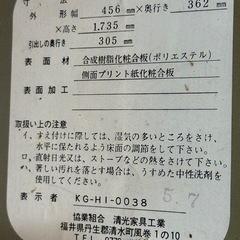 寸法
外形 幅 456 mm×奥行き 362 mm
×高さ 1,735 mm
引出しの奥行き 305 mm
表面材 合成樹脂化粧合板(ポリエステル)
側面プリント紙化粧合板
表面加工
取扱い上の注意
イ、すえ付けに際しては、湿気の多いところをさけ、
水平に保れるよう床面の調節をして下さい。
ロ、直射日光又は、ストーブなどの熱をさけて下さい。
ハ、著しい汚れを落とす場合は、うすめた中性洗剤を
使用してください。
表示者 KG-HI-0038
5.7
協業組合 清光家具工業
福井県丹生郡清水町風巻1の10